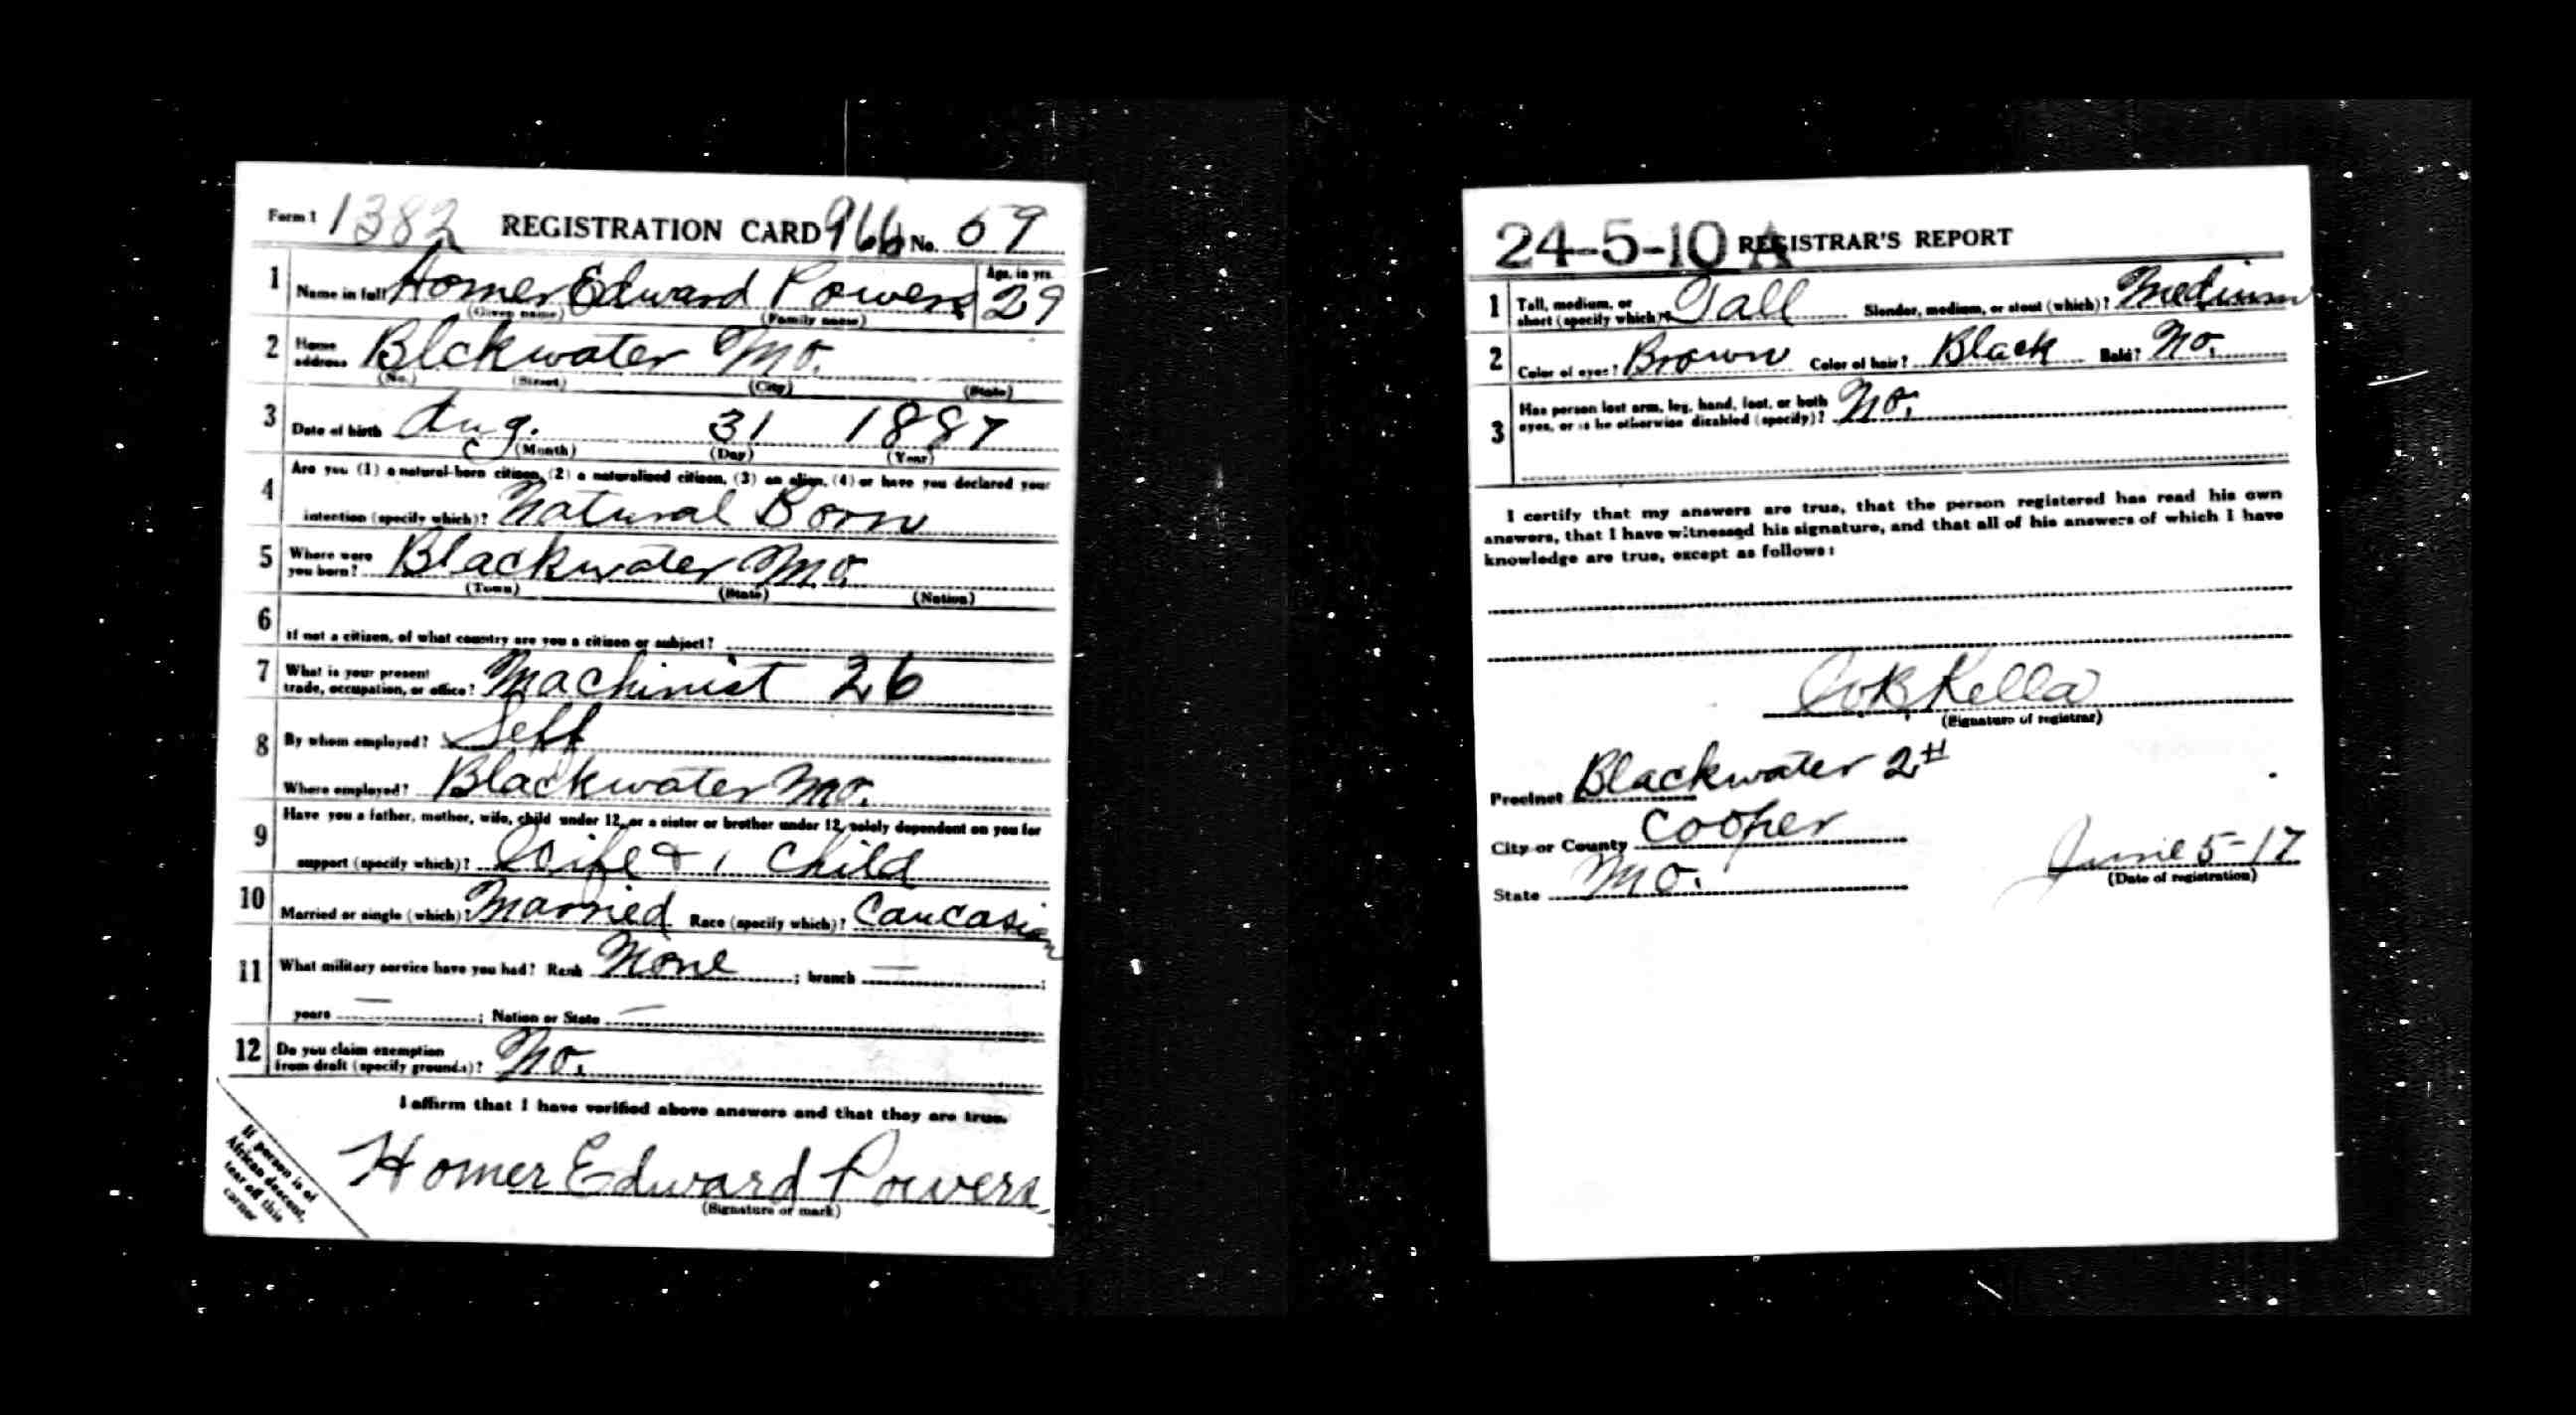 Form 1 1382 REGISTRATION CARD 966 No. 59
1 Name in full Homer Edward Powers Age, in yrs. 29
(Given name) (Family name)
2 Home address Blckwater Mo.
(No.) (Street) (City) (State)
3 Date of birth Aug. 31 1887
(Month) (Day) (Year)
4 Are you (1) a natural-born citizen, (2) a naturalized citizen, (3) an alien, (4) or have you declared your
intention (specify which)? Natural Born
5 Where were you born? Blackwater Mo.
(Town) (State) (Nation)
6 If not a citizen, of what country are you a citizen or subject?
7 What is your present trade, occupation, or office? Machinist 26
8 By whom employed? Self
Where employed? Blackwater Mo.
9 Have you a father, mother, wife, child under 12, or a sister or brother under 12, solely dependent on you for
support (specify which)? Wife & 1 Child
10 Married or single (which)? Married Race (specify which)? Caucasian
11 What military service have you had? Rank None ; branch — ;
years — ; Nation or State —
12 Do you claim exemption from draft (specify grounds)? No.
I affirm that I have verified above answers and that they are true.
Homer Edward Powers
(Signature or mark)
If person is of
African descent,
tear off this
corner
24-5-10 A REGISTRAR'S REPORT
1 Tall, medium, or short (specify which)? Tall Slender, medium, or stout (which)? Medium
2 Color of eyes? Brown Color of hair? Black Bald? No.
3 Has person lost arm, leg, hand, foot, or both
eyes, or is he otherwise disabled (specify)? No.
I certify that my answers are true, that the person registered has read his own
answers, that I have witnessed his signature, and that all of his answers of which I have
knowledge are true, except as follows:
(Signature of registrar)
Precinct Blackwater 2
City or County Cooper
State Mo.
June 5-17
(Date of registration)